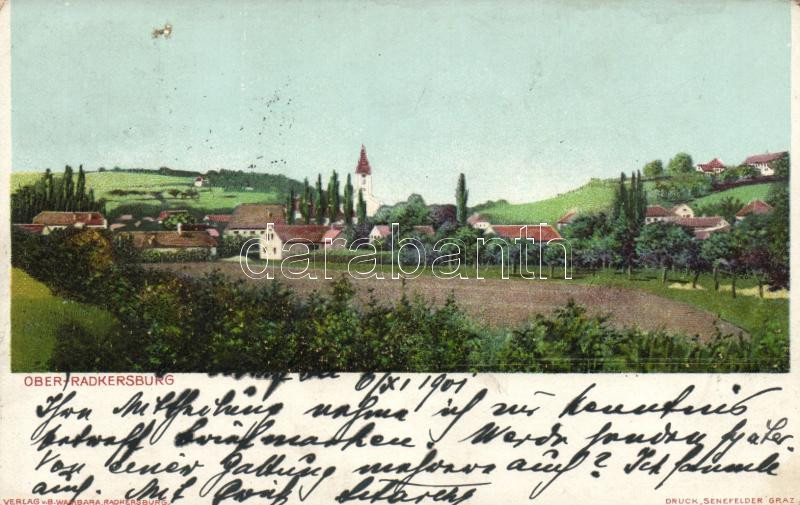 darabanth
OBER-RADKERSBURG
6/XI 1901
Ihre Mittheilung nehme ich zur Kenntnis
betreff Briefmarken. Werde senden später.
Von einer Gattung mehrere auch? Ich sammle
auch. Mit Gruß
VERLAG v. B. WAMBARA, RADKERSBURG.
DRUCK „SENEFELDER" GRAZ.